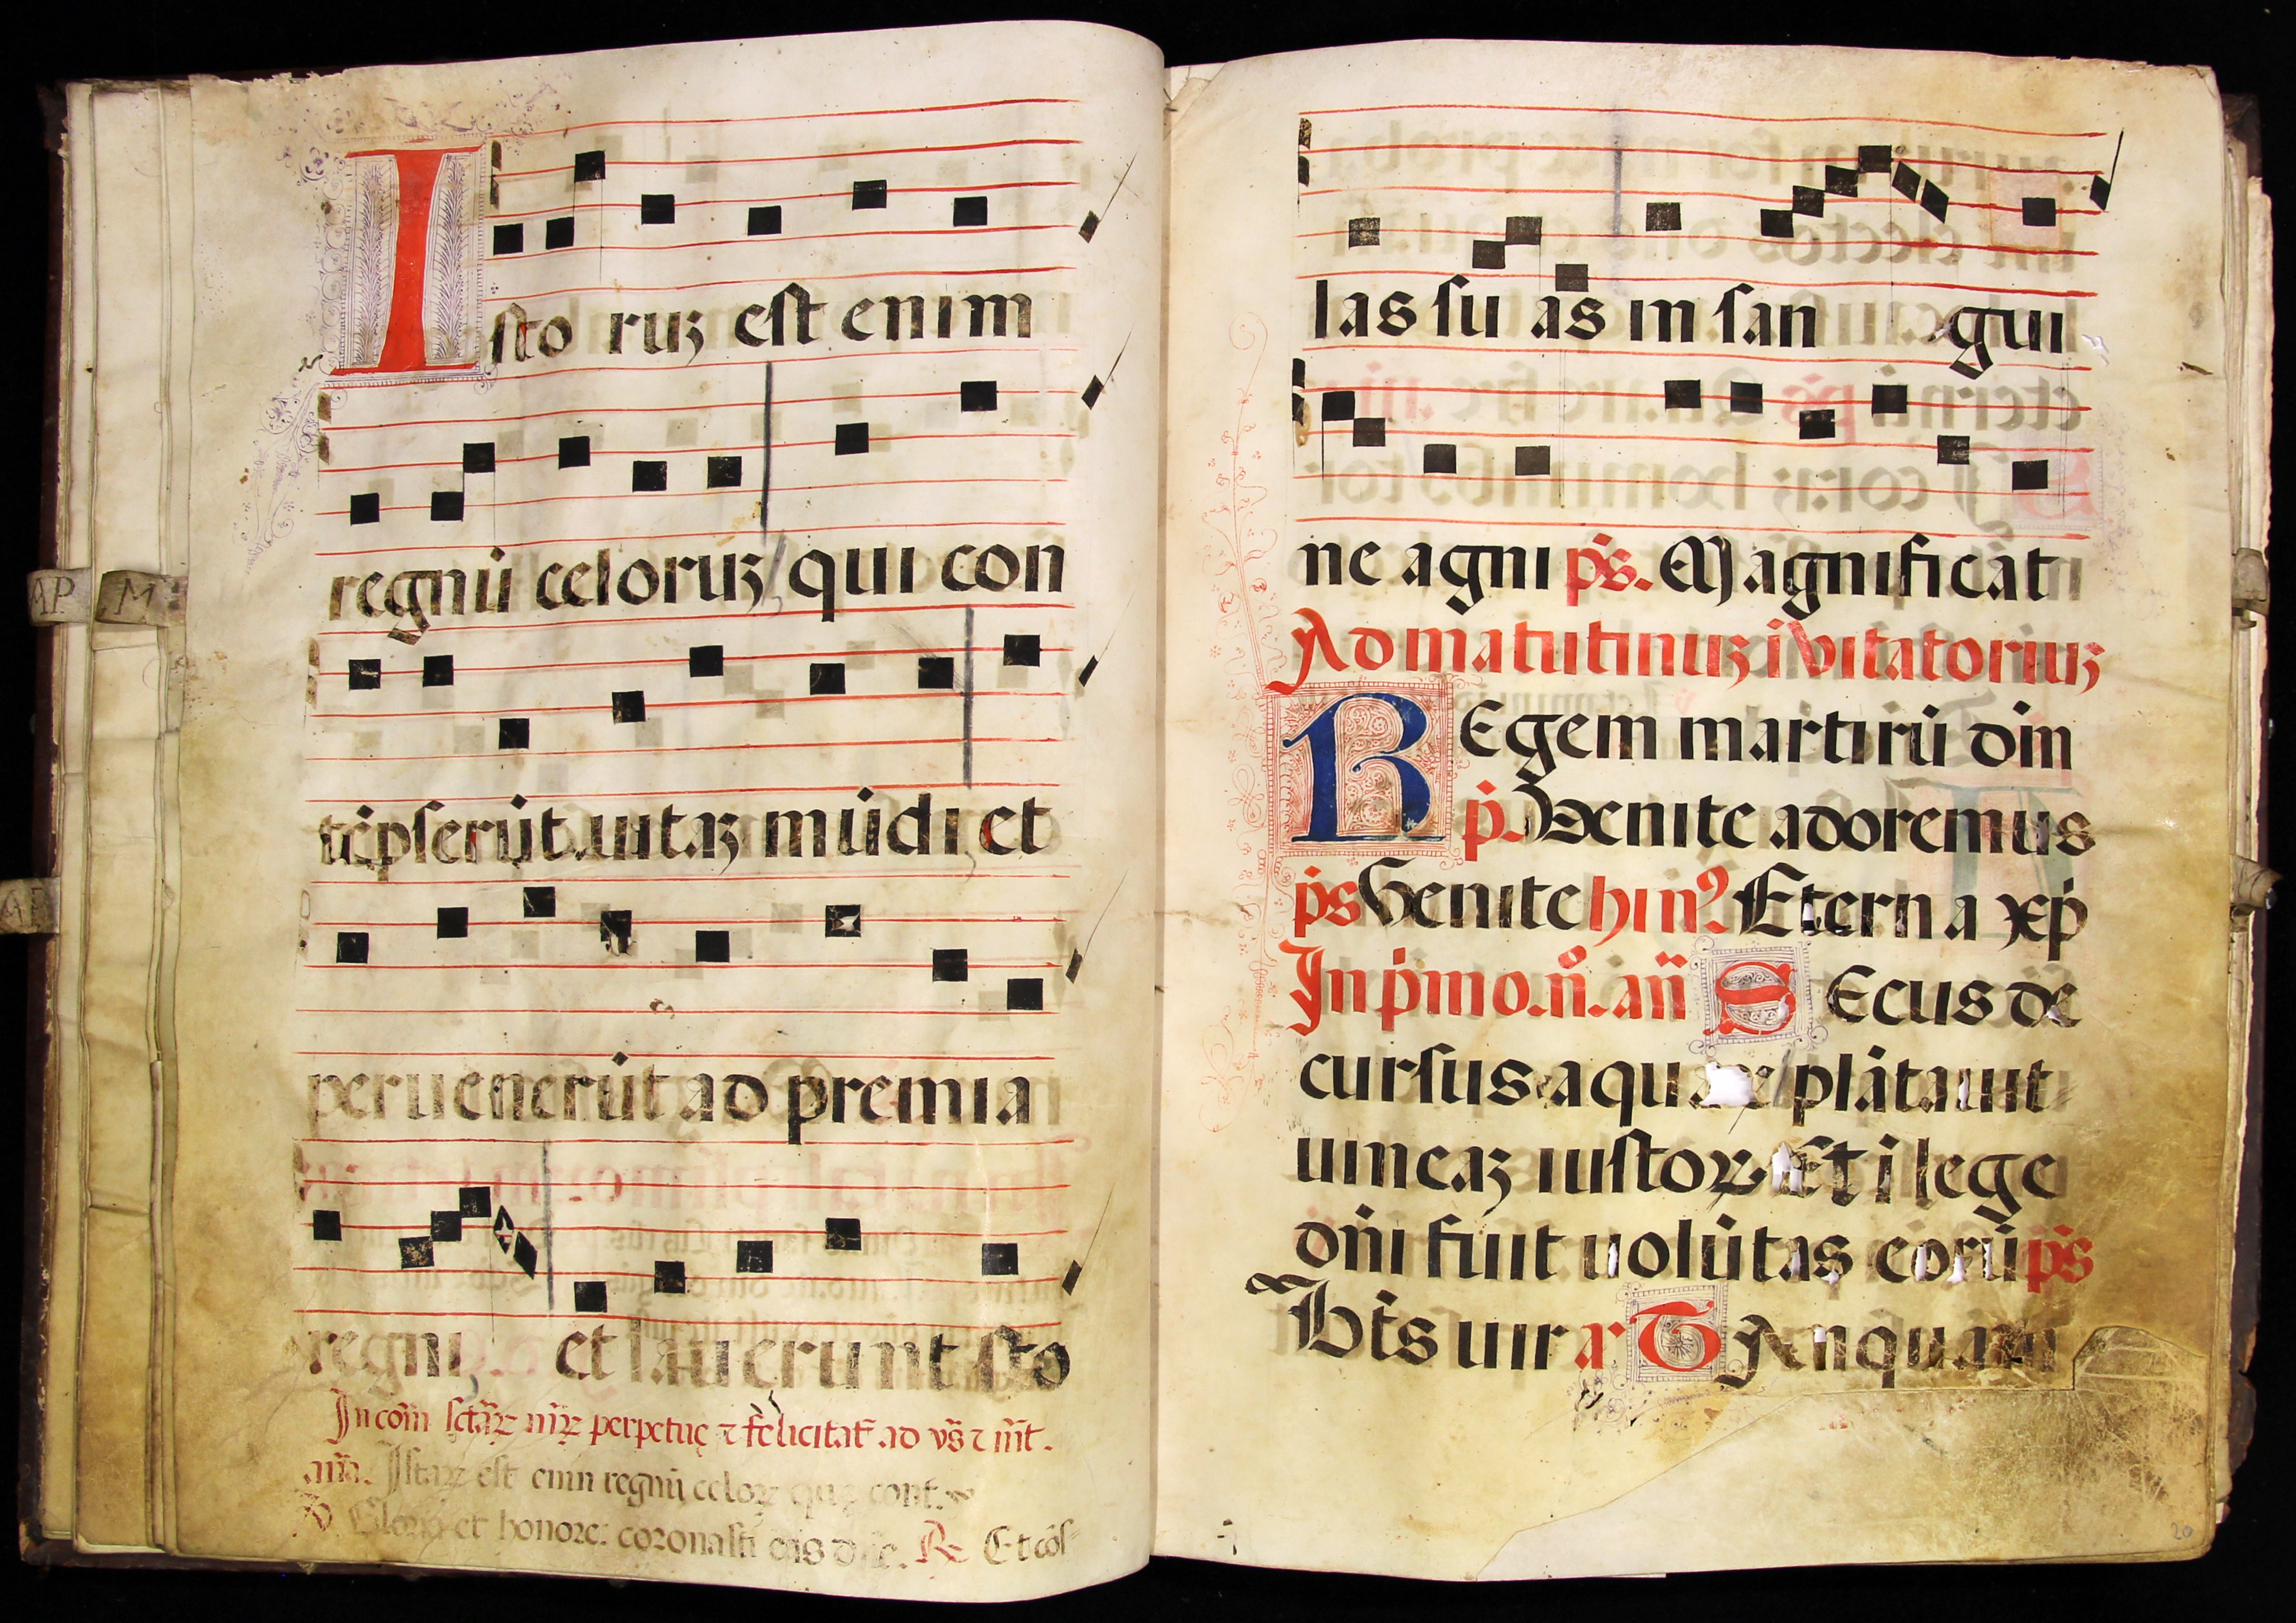 Isto ruʒ est enim
regnū celoruʒ qui con
tēpserūt uitaʒ mūdi et
peruenerūt ad premia
regni et lauerunt sto
In com̄ sctāꝝ mr̄ꝝ perpetuę ⁊ felicitat̄ ad vs̄ ⁊ mt̄.
an̄a. Istaꝝ est enim regnū celoꝝ quę cont.
Gloria et honore: coronasti eas dn̄e. ℞ Et cōs
AP M
las su as in san gui
ne agni ps̄. Magnificat
Ad matutinuʒ īvitatoriuʒ
REgem martirū dm̄
p̄. Venite adoremus
ps̄ Venite hin̄ꝰ Eterna xp̄
In pīmo. n̄. an̄ SEcus de
cursus aqua plātauit
uineaʒ iustoꝝ Et ī lege
dn̄i fuit uolūtas eorū ps̄
Bt̄s uir ar TAnquam
20